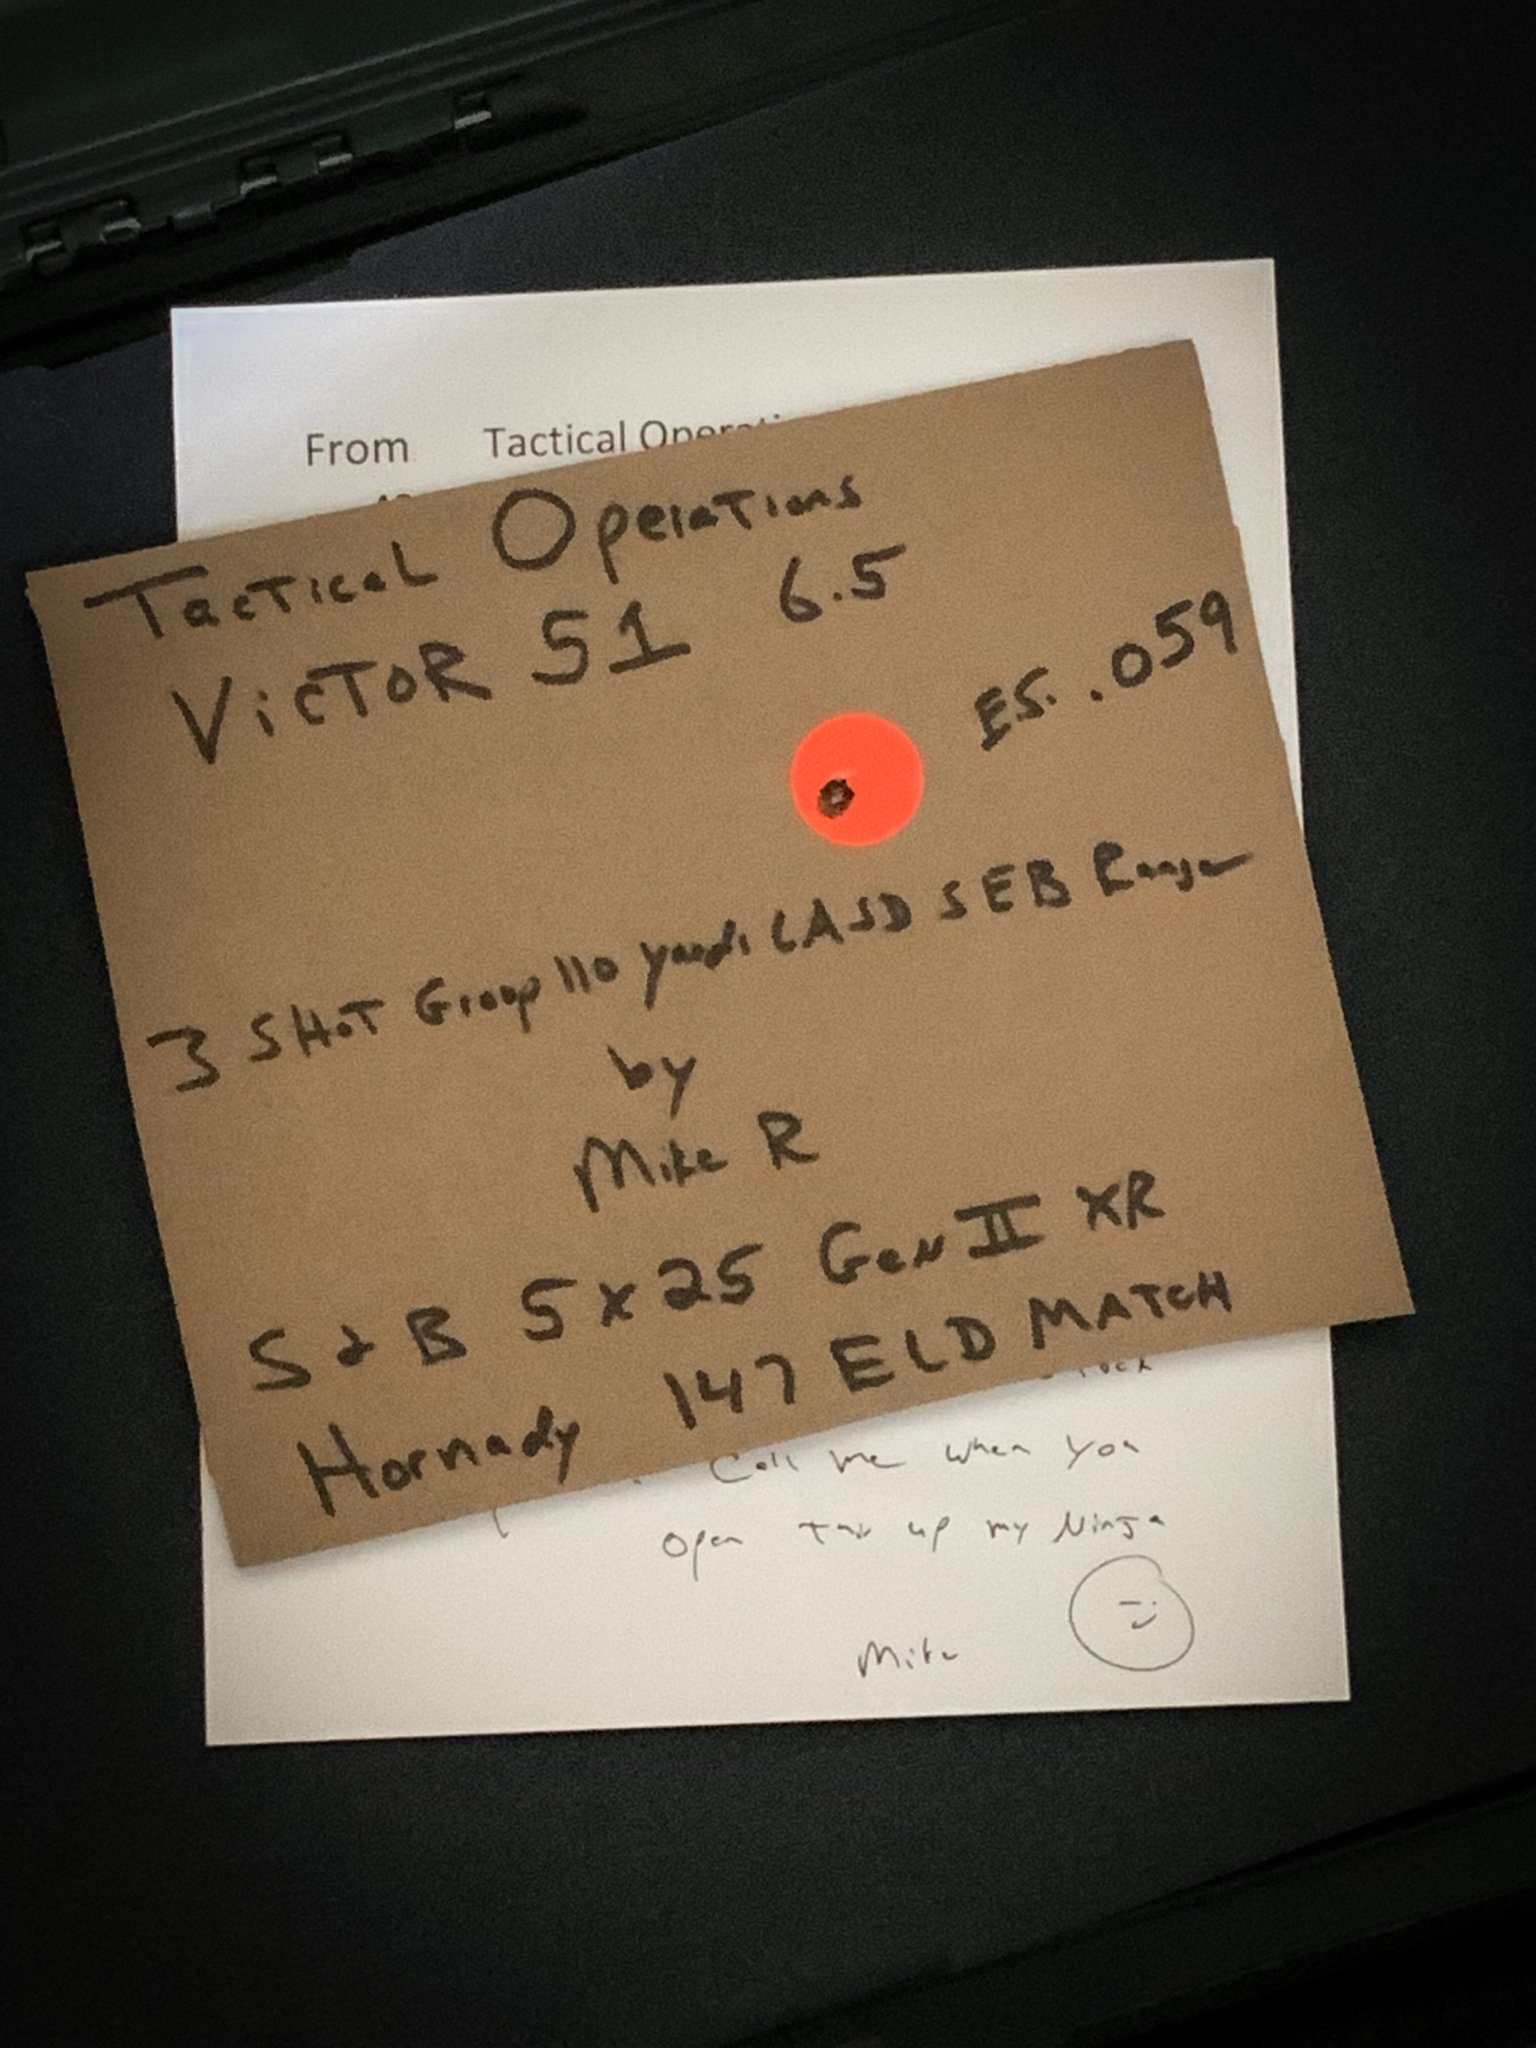 From Tactical
Tactical Operations
Victor 51 6.5
ES. .059
3 SHOT Group 110 yards LASD SEB Range
by
Mike R
S & B 5x25 Gen II XR
Hornady 147 ELD MATCH
Call me when you
open up my Ninja
Mike